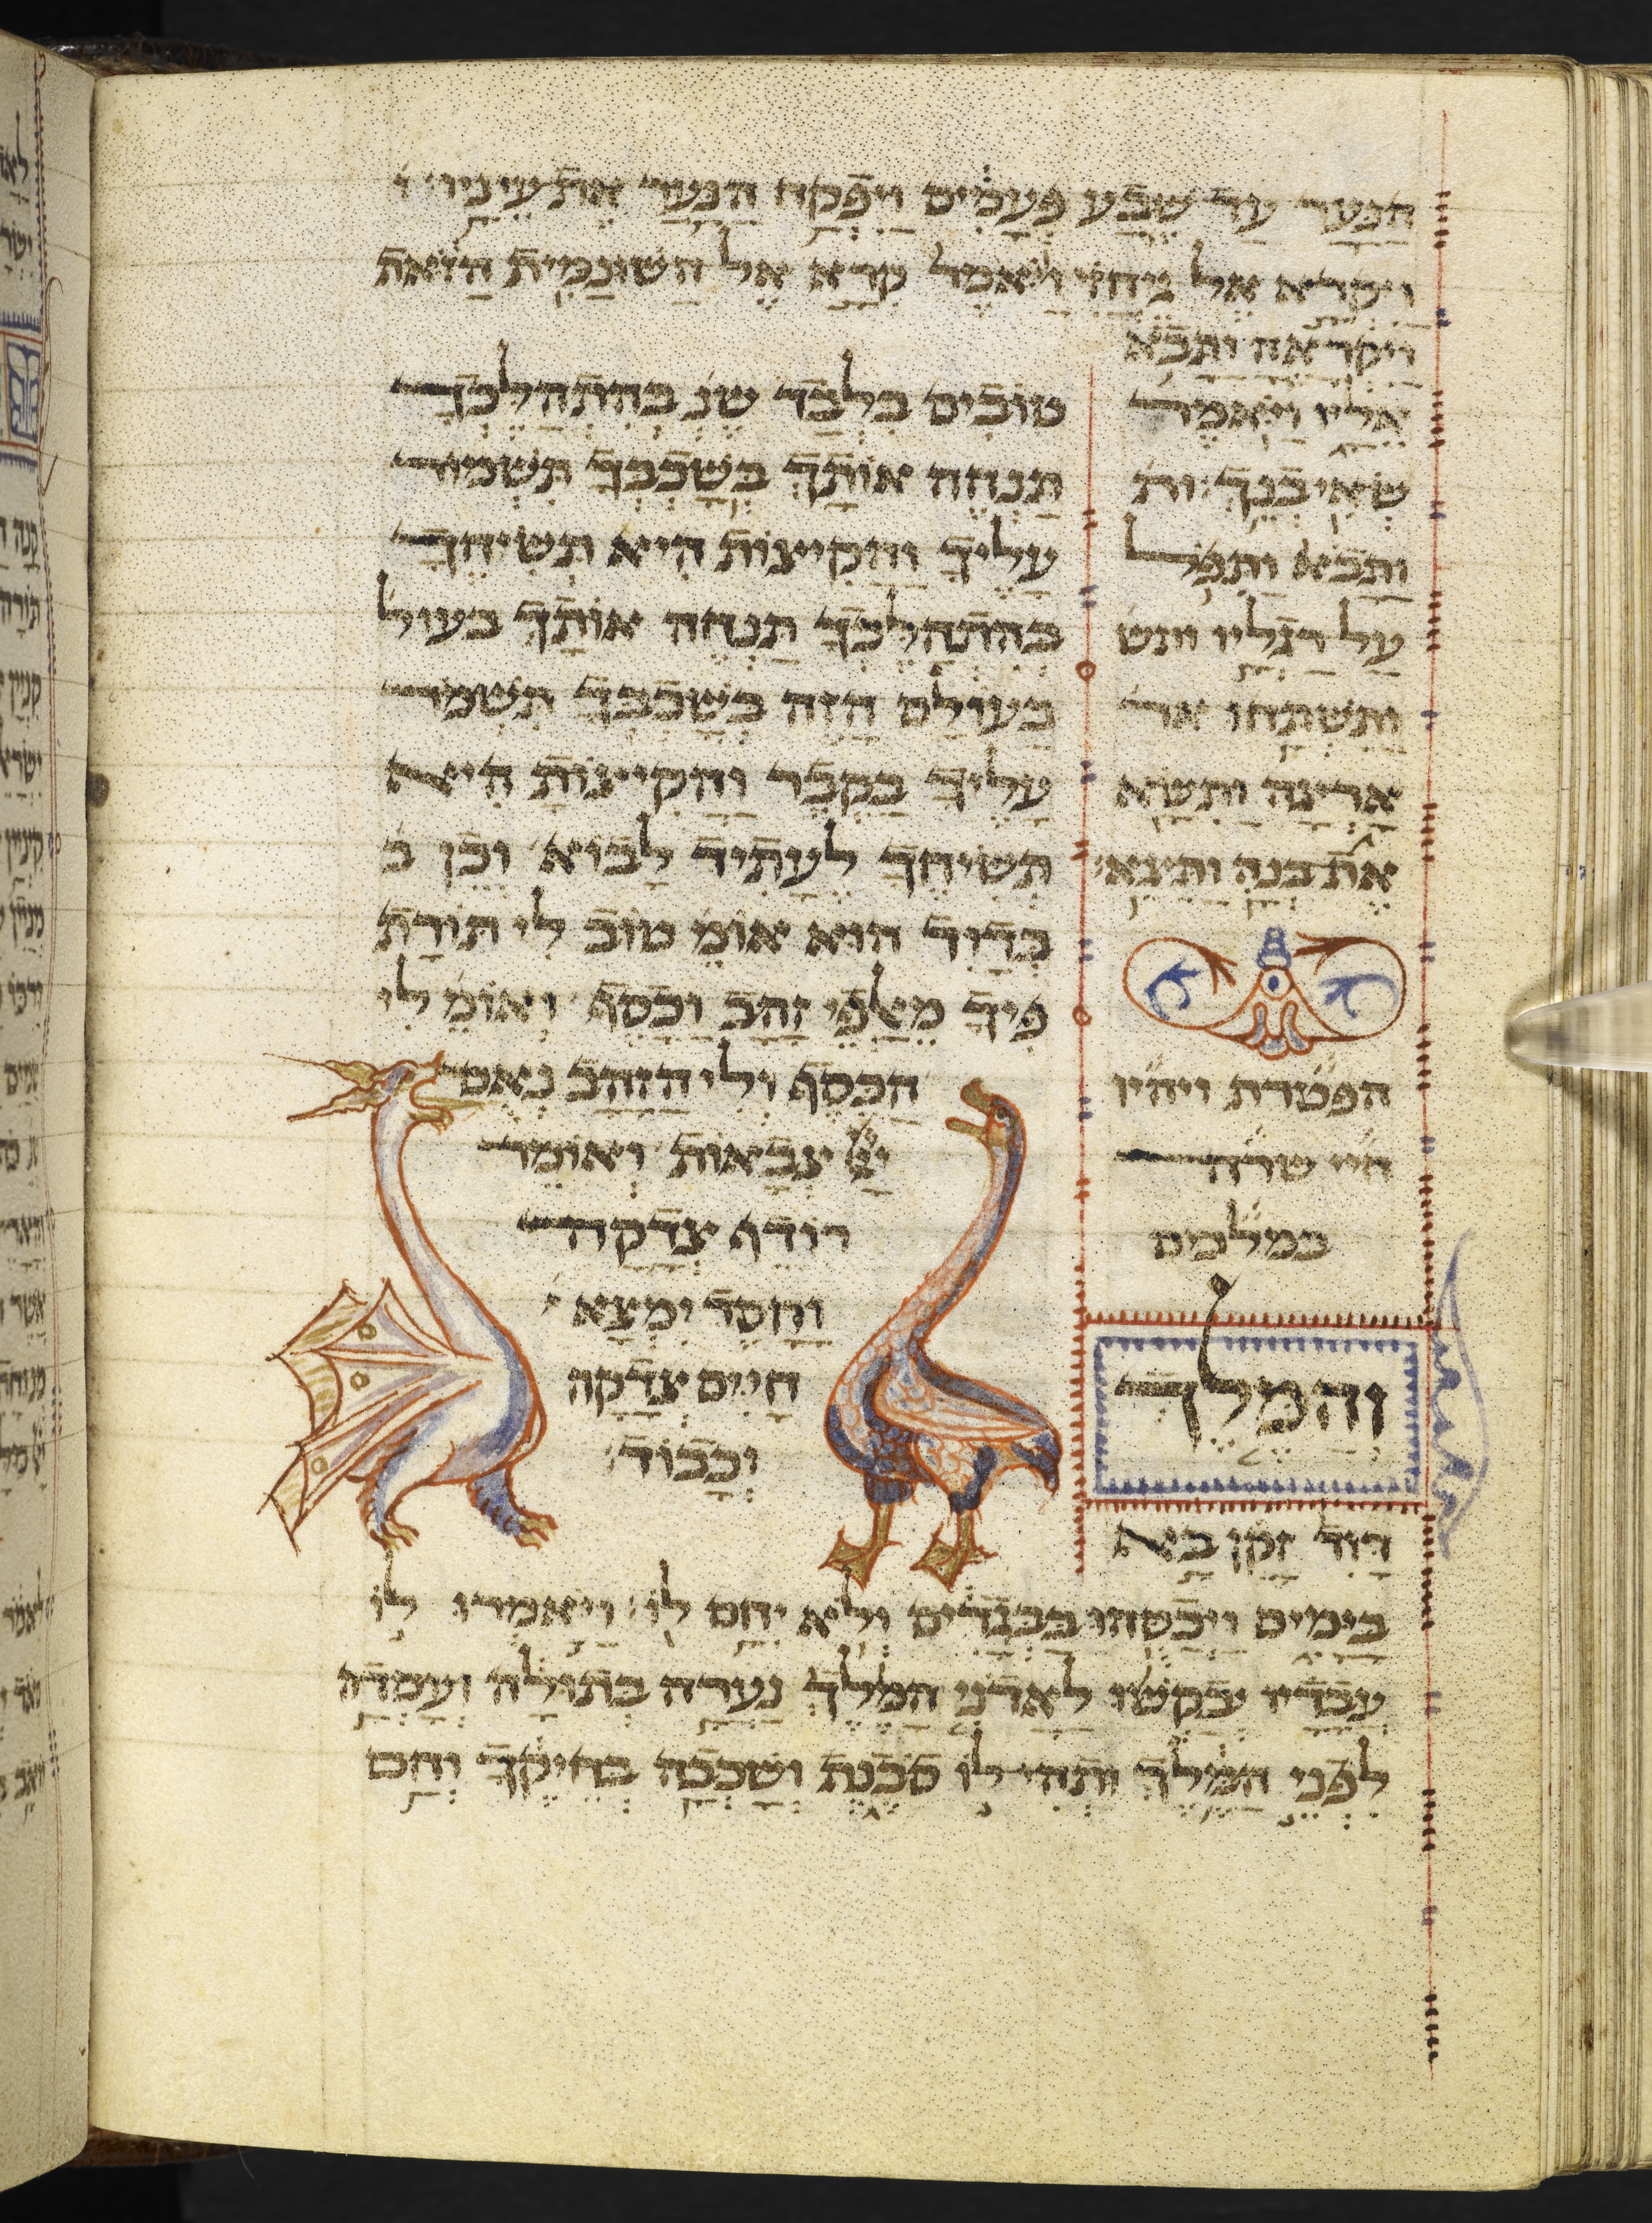 הנער עד שבע פעמים ויפקח הנער את עיניו
ויקרא אל גיחזי ויאמר קרא אל השונמית הזאת
ויקראה ותבא
אליו ויאמר
שאי בנך ות
ותבא ותפל
על רגליו ותש
ותשתחו אר
ארצה ותשא
את בנה ותצא
הפטרת ויהיו
חיי שרה
במלכים
והמלך
דוד זקן בא
בימים ויכסהו בבגדים ולא יחם לו ויאמרו לו
עבדיו יבקשו לאדני המלך נערה בתולה ועמדה
לפני המלך ותהי לו סכנת ושכבה בחיקך וחם
טובים בלבד שנ בהתהלכך
תנחה אותך בשכבך תשמור
עליך והקיצות היא תשיחך
בהתהלכך תנחה אותך בעול
בעולם הזה בשכבך תשמור
עליך בקבר והקיצות היא
תשיחך לעתיד לבוא וכן כ
בדויד הוא אומ טוב לי תורת
פיך מאלפי זהב וכסף ואומ לי
הכסף ולי הזהב נאם
יי צבאות ואומר
רודף צדקה
וחסד ימצא
חיים צדקה
וכבוד